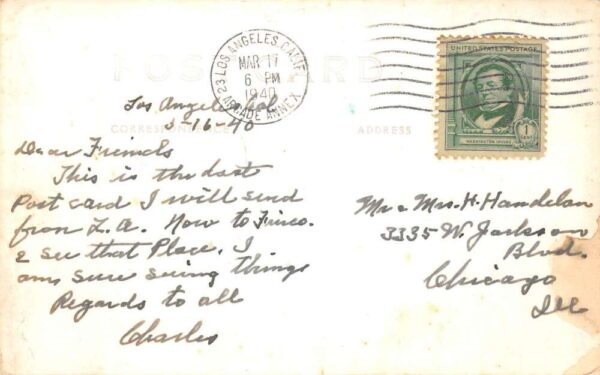 POST CARD
LOS ANGELES, CALIF.
23
MAR 17
6 PM
1940
ARCADE ANNEX
UNITED STATES POSTAGE
1 CENT
WASHINGTON IRVING
CORRESPONDENCE
ADDRESS
Los Angeles Cal
3-16-40
Dear Friends
This is the last
Post card I will send
from L.A. Now to Frisco.
& see that Place. I
am sure seeing things
Regards to all
Charles
Mr & Mrs. H. Handelan
3335 W. Jackson
Blvd.
Chicago
Ill